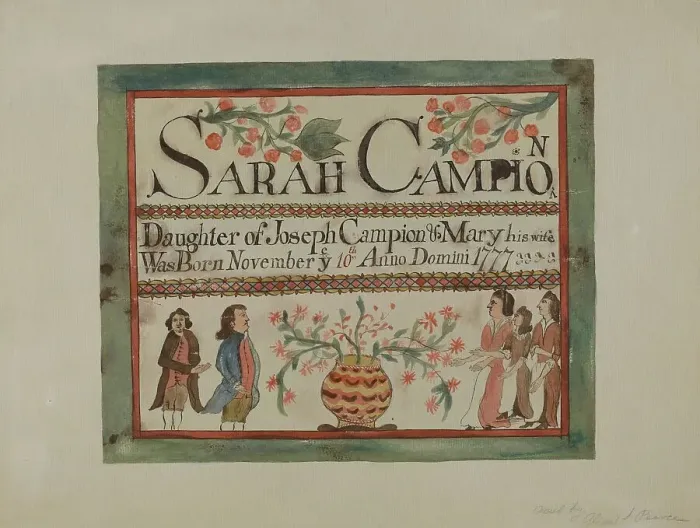 SARAH CAMPION
Daughter of Joseph Campion & Mary his wife
Was Born November ye 10th Anno Domini 1777